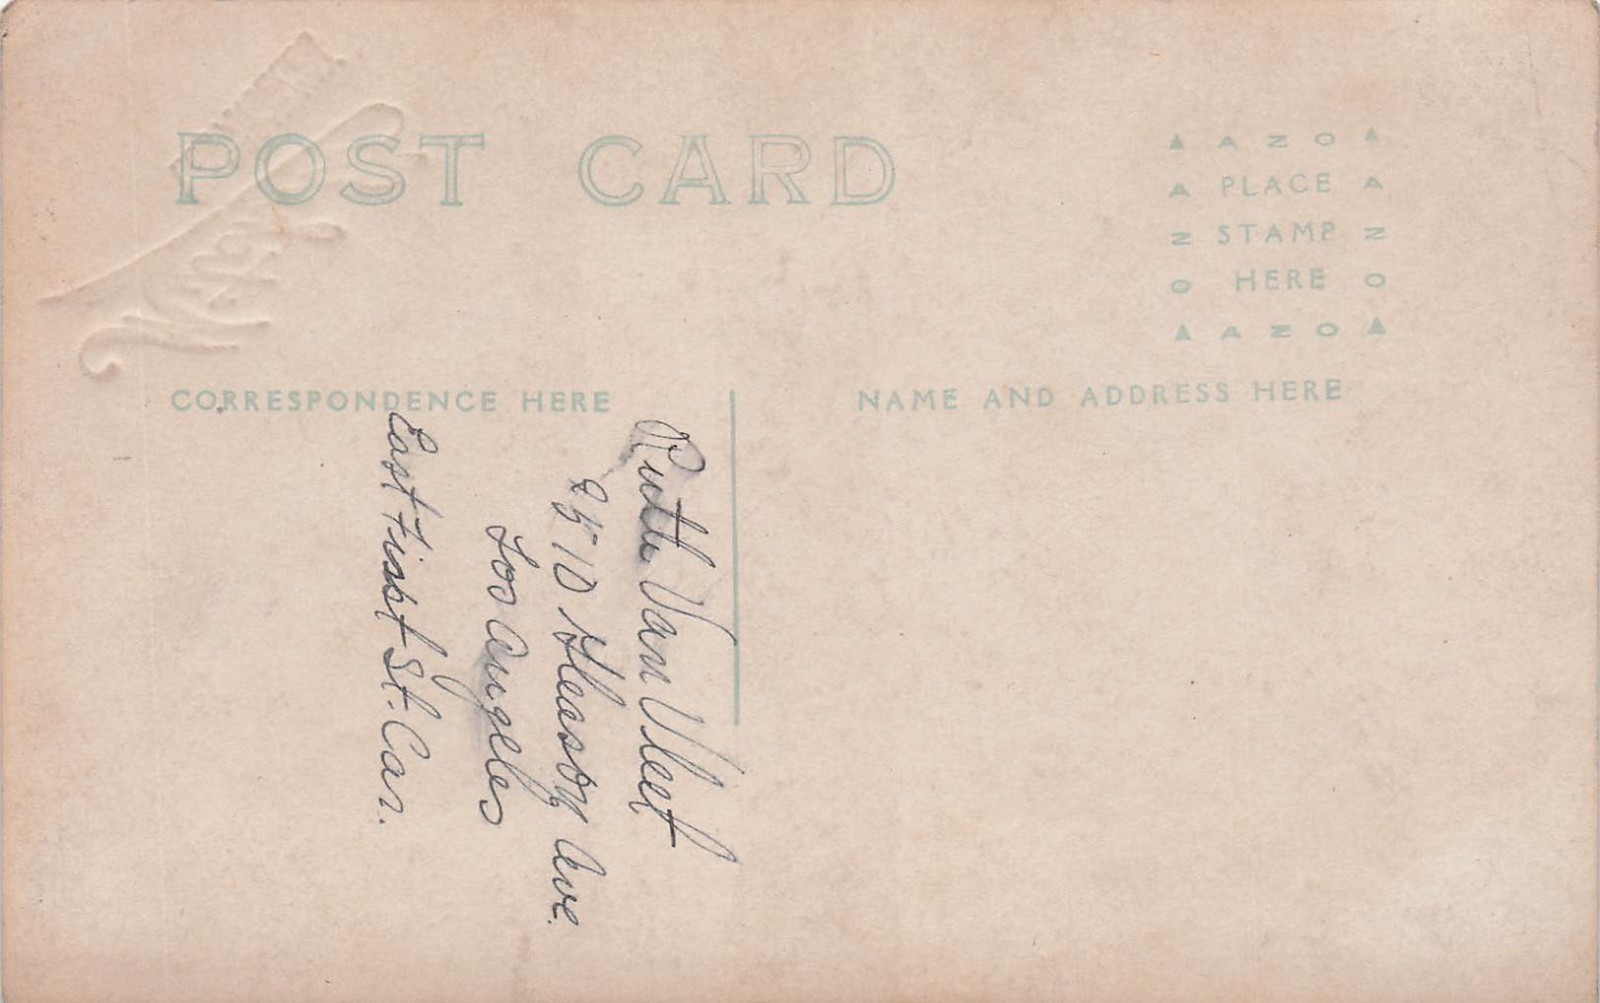 POST CARD
▲ A Z O ▲
A PLACE A
Z STAMP Z
O HERE O
▲ A Z O ▲
CORRESPONDENCE HERE
NAME AND ADDRESS HERE
Ruth Van Vleet
2510 Gleason Ave.
Los Angeles
East First St. Car.